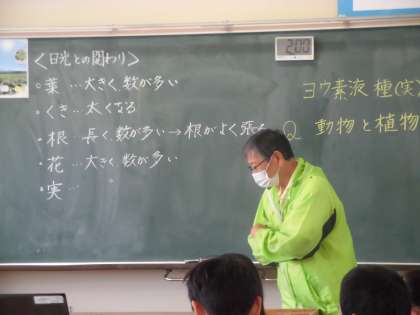 〈日光との関わり〉
○葉…大きく数が多い
・くき…太くなる
・根…長く、数が多い→根がよく張
・花…大きく、数が多い
・実…
200
ヨウ素液 種(実)
Q 動物と植物